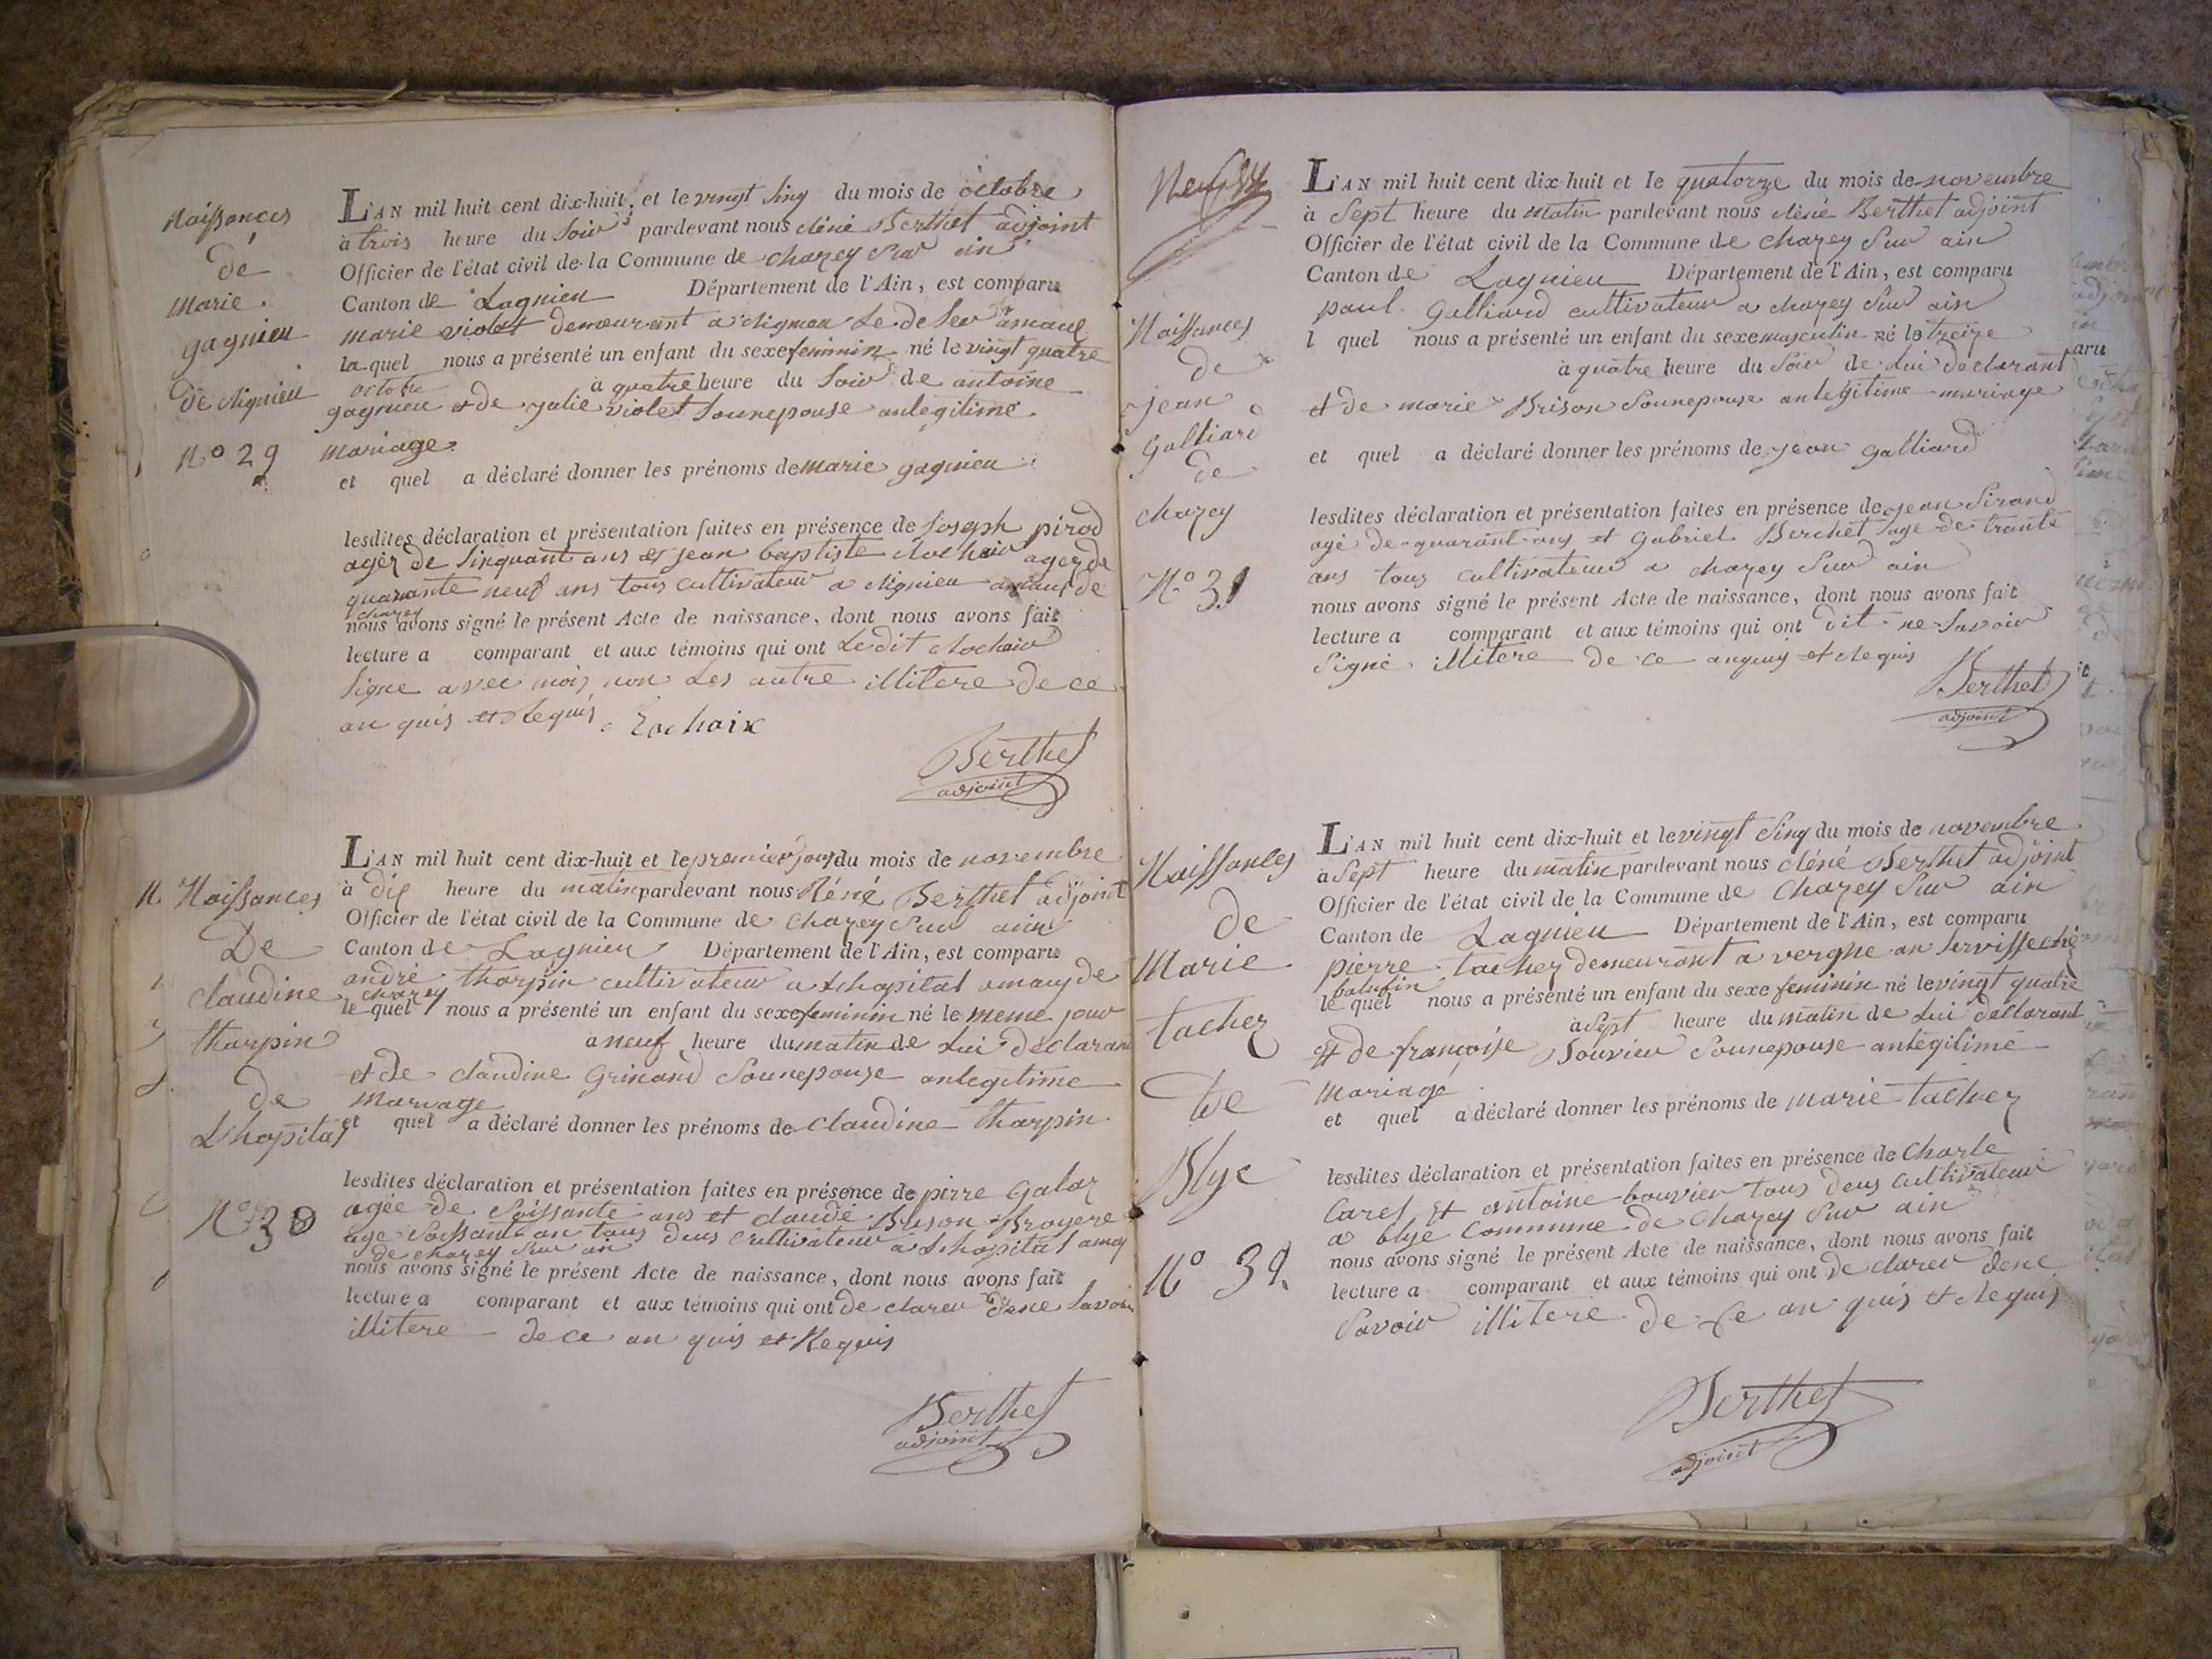 Naissances
de
Marie
gagnieu
de Rignieu
No 29
L'AN mil huit cent dix-huit, et le vingt sinq du mois de octobre
à trois heure du soir pardevant nous Réné Berthet adjoint
Officier de l'état civil de la Commune de chazey sur ain
Canton de Lagnieu Département de l'Ain, est comparu
marie violet demeurant a Rignieu
la quel nous a présenté un enfant du sexe feminin né le vingt quatre
octobre à quatre heure du soir de antoine
gagnieu et de julie violet sounepouse anlegitime
mariage
et quel a déclaré donner les prénoms de marie gagnieu
lesdites déclaration et présentation faites en présence de joseph pirod
agéz de sinquant ans et jean baptiste Rochaix agez de
quarante neuf ans tous cultivateur a Rignieu amaux de
chazey
nous avons signé le présent Acte de naissance, dont nous avons fait
lecture a comparant et aux témoins qui ont Ledit Rochaix
signe avec mois non Les autre illitere de ce
an quis et Requis Rochaix
Berthet
adjoint
N. Naissances
De
claudine
tharpin
de
Lhopital
No 30
L'AN mil huit cent dix-huit et le premier jour du mois de novembre
à dix heure du matin pardevant nous Réné Berthet adjoint
Officier de l'état civil de la Commune de chazey sur ain
Canton de Lagnieu Département de l'Ain, est comparu
andré tharpin cultivateur a Lhopital amaux de
chazey
le quel nous a présenté un enfant du sexe feminin né le meme jour
a neuf heure du matin de Lui déclarant
et de claudine Grinand sounepouse anlegitime
mariage
et quel a déclaré donner les prénoms de claudine tharpin
lesdites déclaration et présentation faites en présence de pirre Galaz
agée de soissante ans et claude Brison Broyere
age soissant an tous deus cultivateur a Lhopital amaux
de chazey sur ain
nous avons signé le présent Acte de naissance, dont nous avons fait
lecture a comparant et aux témoins qui ont de clarer dene savoir
illitere de ce an quis et Requis
Berthet
adjoint
Naissances
de
jean
Galliard
de
chazey
No 31
L'AN mil huit cent dix-huit et le quatorze du mois de novembre
à sept heure du matin pardevant nous Réné Berthet adjoint
Officier de l'état civil de la Commune de chazey sur ain
Canton de Lagnieu Département de l'Ain, est comparu
paul Galliard cultivateur a chazey sur ain
l quel nous a présenté un enfant du sexe masculin né le treize
à quatre heure du soir de Lui declarant
et de marie Brison sounepouse anlegitime mariage
et quel a déclaré donner les prénoms de jean galliard
lesdites déclaration et présentation faites en présence de jean Sirand
agé de quarant ans et Gabriel Berchet age de trante
ans tous cultivateur a chazey sur ain
nous avons signé le présent Acte de naissance, dont nous avons fait
lecture a comparant et aux témoins qui ont dit ne savoir
signé illitere de ce anquis et Requis
Berthet
adjoint
Naissances
de
Marie
tacher
De
Blye
No 32
L'AN mil huit cent dix-huit et le vingt sinq du mois de novembre
à sept heure du matin pardevant nous Réné Berthet adjoint
Officier de l'état civil de la Commune de chazey sur ain
Canton de Lagnieu Département de l'Ain, est comparu
pierre tacher demeurant a vergne an servisse ché
le quel nous a présenté un enfant du sexe feminin né le vingt quatre
à sept heure du matin de Lui declarant
et de françoise bouvier sounepouse anlegitime
mariage
et quel a déclaré donner les prénoms de marie tacher
lesdites déclaration et présentation faites en présence de Charle
Carel et antoine bouvier tous deus cultivateur
a blye commune de chazey sur ain
nous avons signé le présent Acte de naissance, dont nous avons fait
lecture a comparant et aux témoins qui ont de clarer dene
savoir illitere de ce an quis et Requis
Berthet
adjoint